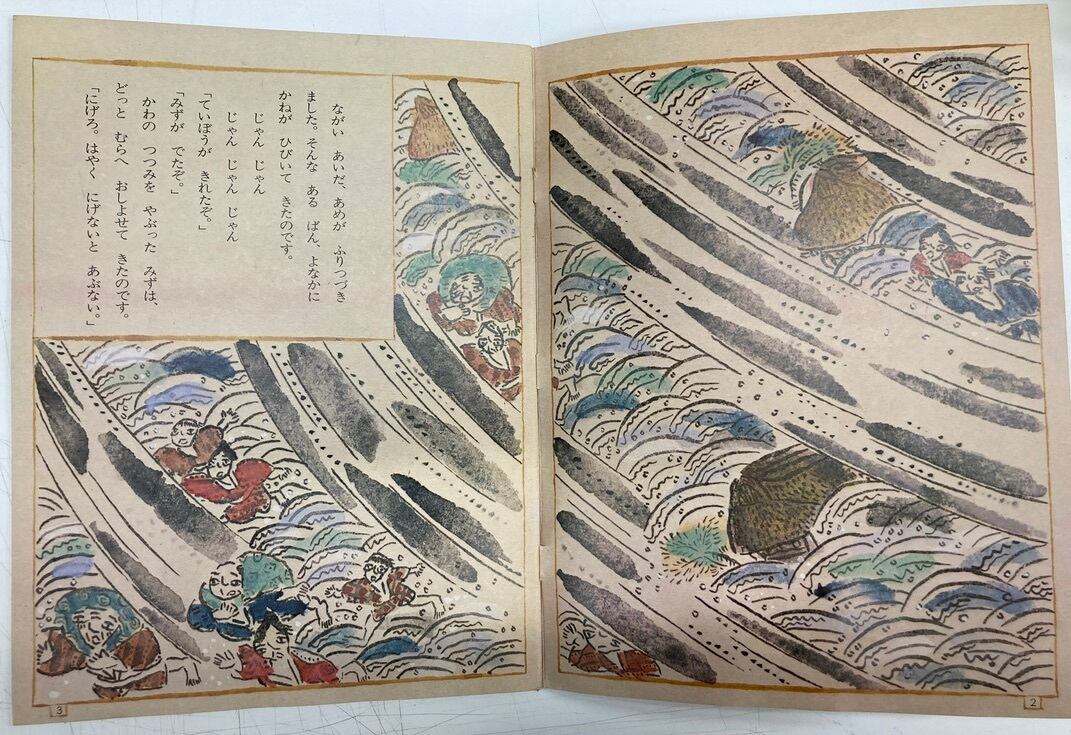 ながい あいだ、あめが ふりつづき
ました。そんな ある ばん、よなかに
かねが ひびいて きたのです。
じゃん じゃん
じゃん じゃん じゃん
「ていぼうが きれたぞ。」
「みずが でたぞ。」
かわの つつみを やぶった みずは、
どっと むらへ おしよせて きたのです。
「にげろ。はやく にげないと あぶない。」
2
3